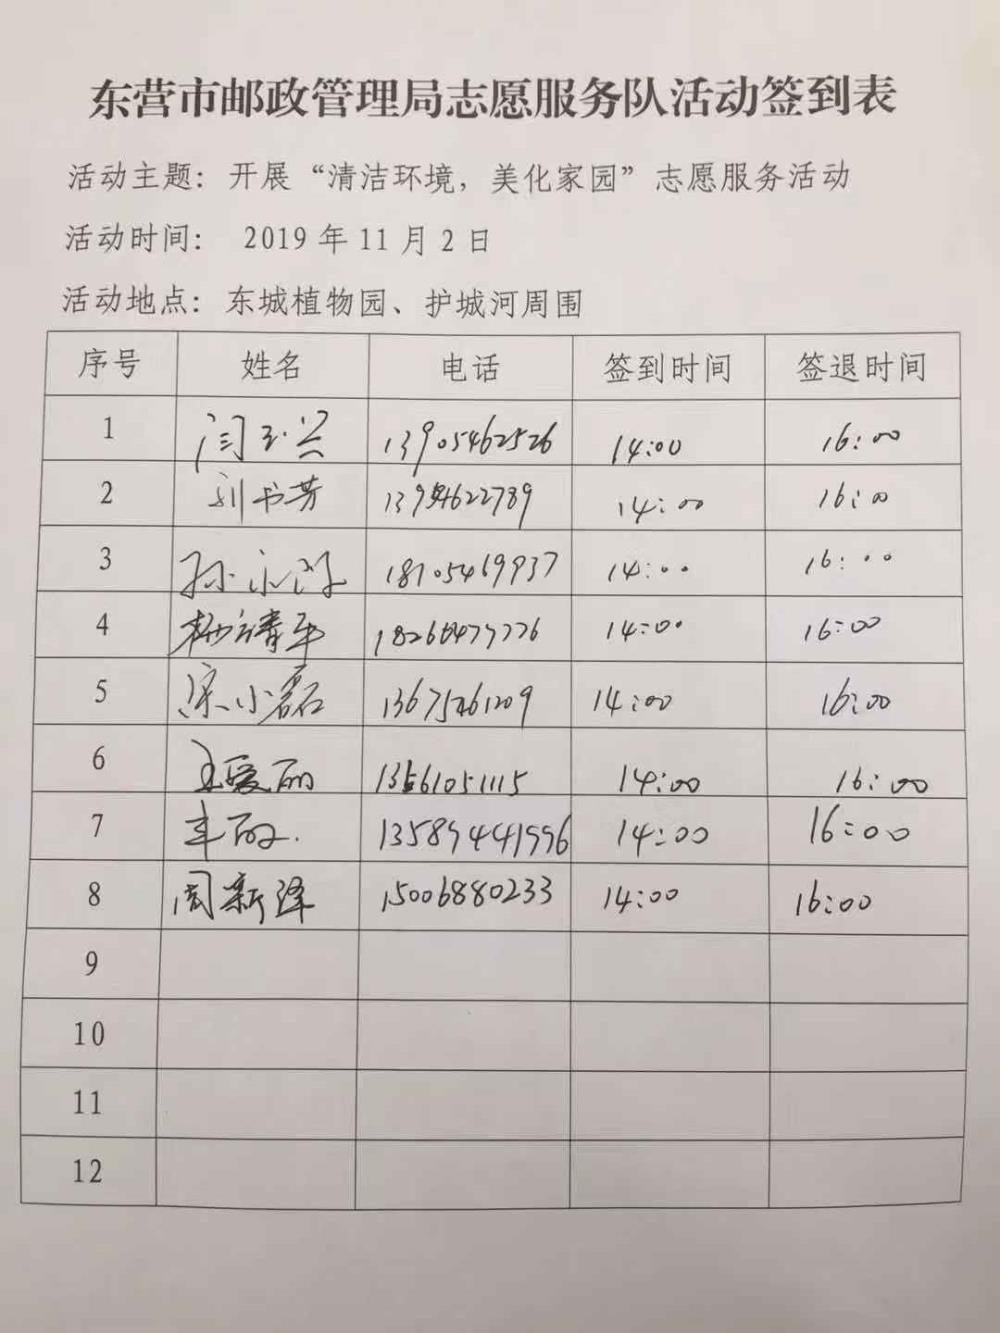 东营市邮政管理局志愿服务队活动签到表
活动主题：开展“清洁环境，美化家园”志愿服务活动
活动时间： 2019 年 11 月 2 日
活动地点：东城植物园、护城河周围
序号 姓名 电话 签到时间 签退时间
1 闫玉兴 13905462526 14:00 16:00
2 刘书芳 14:00 16:00
3 孙永 18105469937 14:00 16:00
4 杨靖年 14:00 16:00
5 宋小磊 13675461209 14:00 16:00
6 王爱丽 13561051115 14:00 16:00
7 丰丽 13589441996 14:00 16:00
8 周新泽 15006880233 14:00 16:00
9
10
11
12